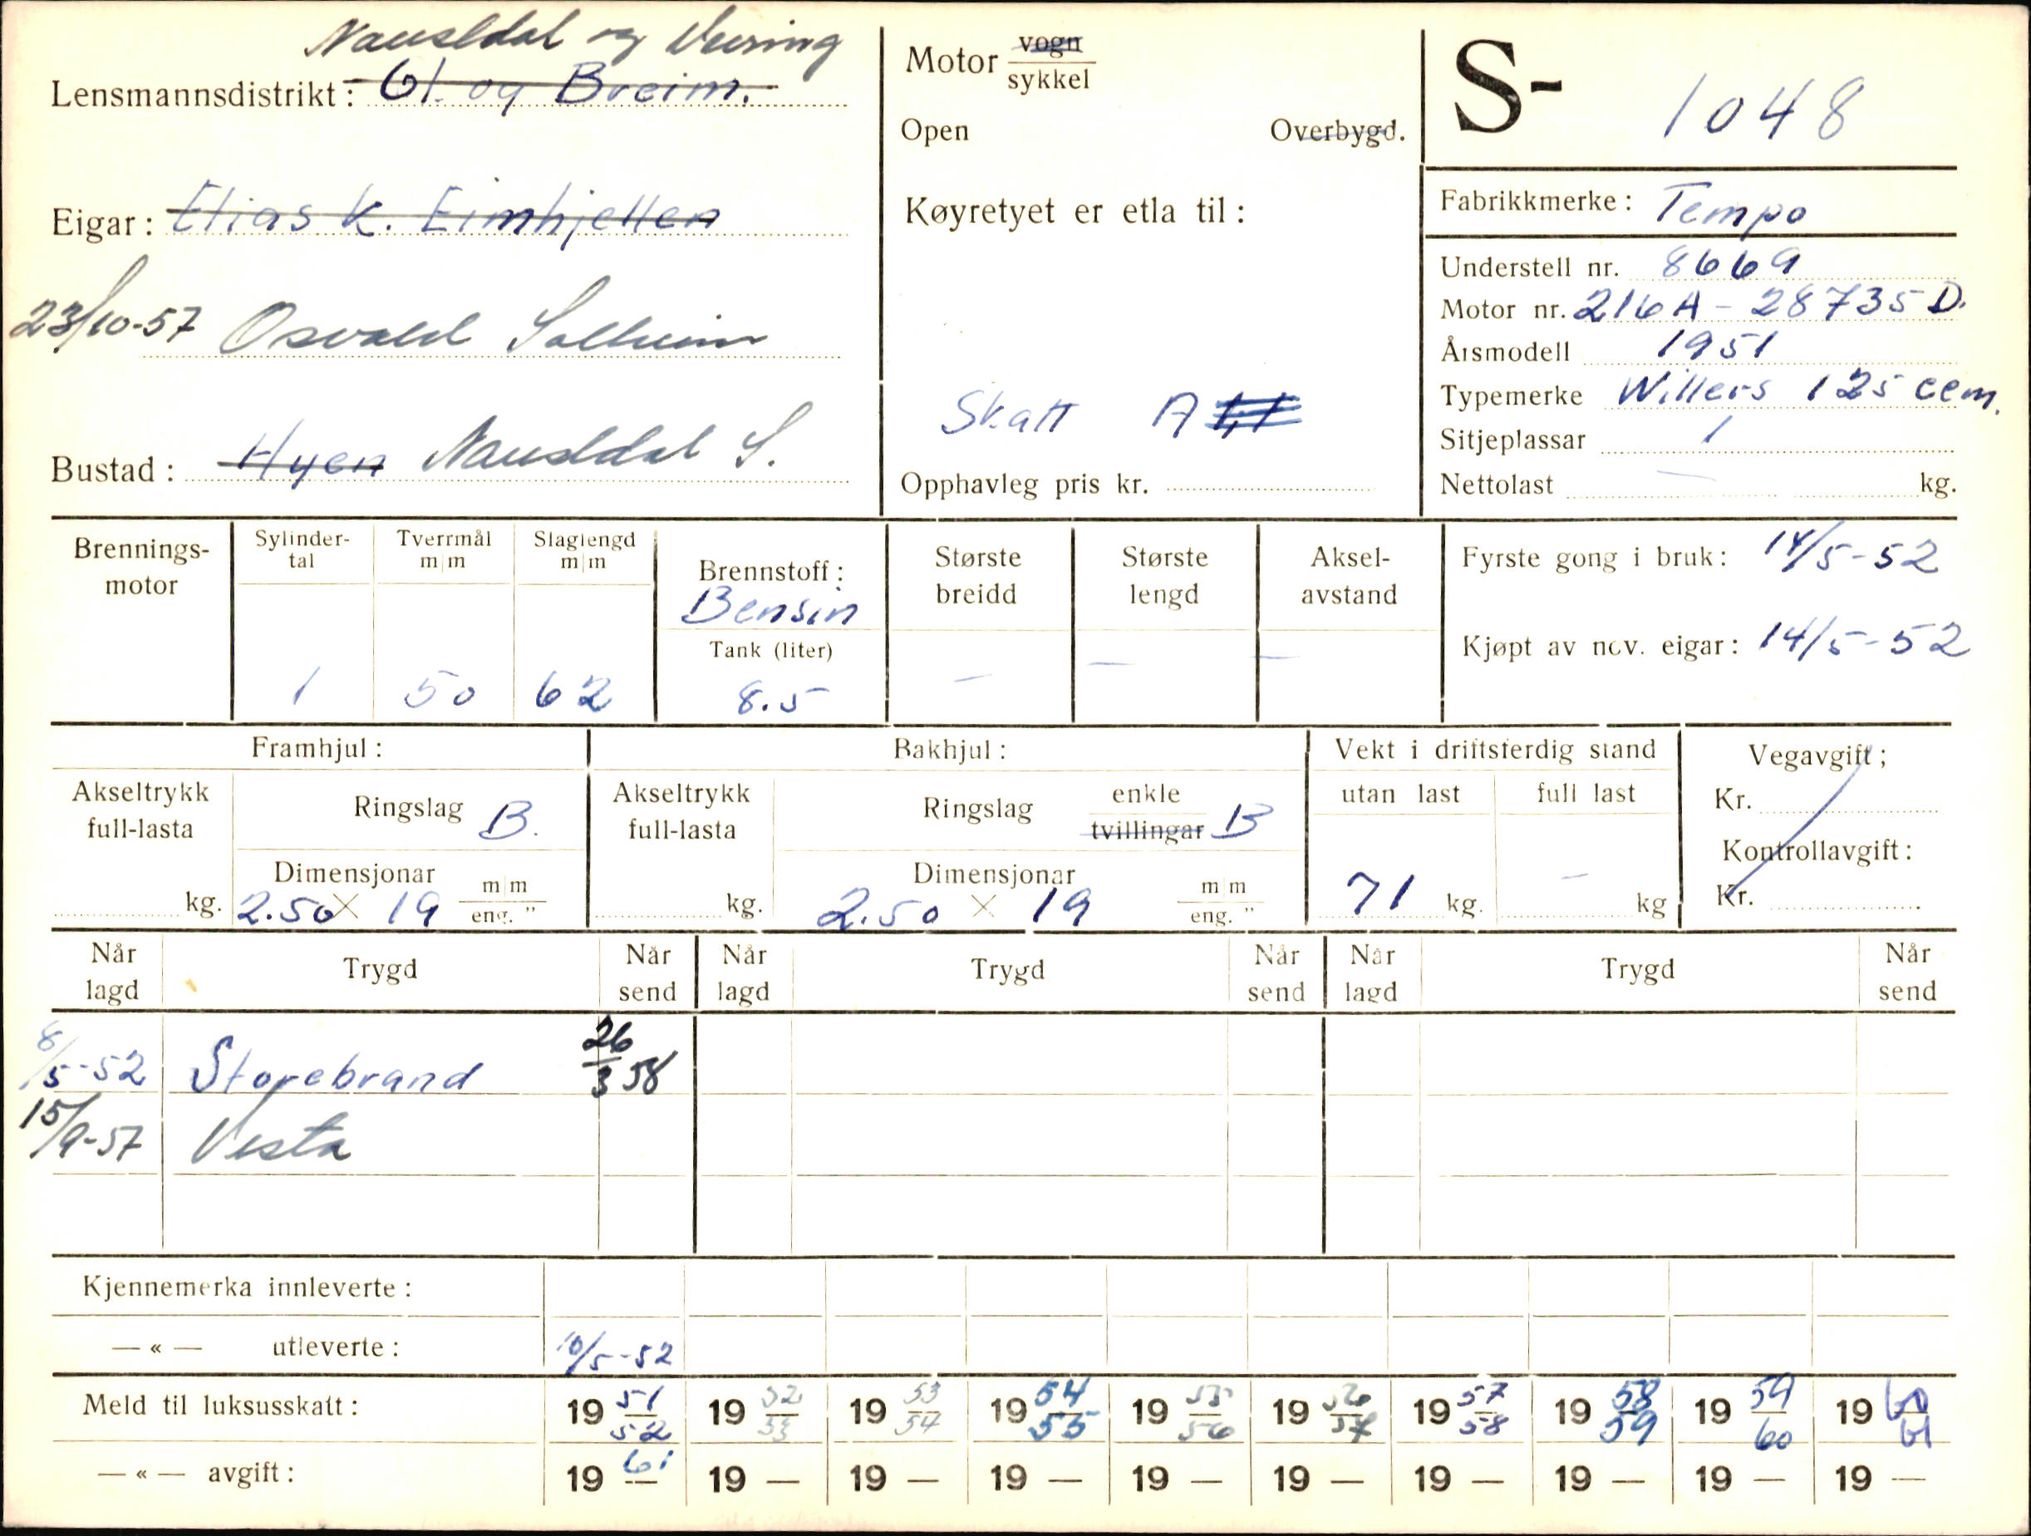 Naustdal og Vevring
Lensmannsdistrikt: Gl. og Breim.
Eigar: Elias K. Eimhjellen
23/10-57 Osvald Solheim
Bustad: Hyen Naustdal S.
Motor vogn
sykkel
Open Overbygd.
Køyretyet er etla til:
Skatt A
Opphavleg pris kr.
S- 1048
Fabrikkmerke: Tempo
Understell nr. 8669
Motor nr. 216A - 28735 D.
Årsmodell 1951
Typemerke Willers 125 ccm.
Sitjeplassar 1
Nettolast — kg.
Brennings-
motor
Sylinder-
tal
1
Tverrmål
m|m
50
Slaglengd
m|m
62
Brennstoff:
Bensin
Tank (liter)
8.5
Største
breidd
—
Største
lengd
—
Aksel-
avstand
—
Fyrste gong i bruk: 14/5-52
Kjøpt av nov. eigar: 14/5-52
Framhjul:
Akseltrykk
full-lasta
kg.
Ringslag B.
Dimensjonar
2.50 x 19 m|m
eng. "
Bakhjul:
Akseltrykk
full-lasta
kg.
Ringslag enkle
tvillingar B
Dimensjonar
2.50 x 19 m|m
eng. "
Vekt i driftsferdig stand
utan last full last
71 kg. — kg
Vegavgift;
Kr.
Kontrollavgift:
Kr.
Når
lagd Trygd Når
send Når
lagd Trygd Når
send Når
lagd Trygd Når
send
8/5-52 Storebrand 26/3 58
15/9-57 Vesta
Kjennemerka innleverte:
— « — utleverte: 10/5-52
Meld til luksusskatt: 19 51/52 19 52/53 19 53/54 19 54/55 19 55/56 19 56/57 19 57/58 19 58/59 19 59/60 19 60/61
— « — avgift: 19 61 — 19 — 19 — 19 — 19 — 19 — 19 — 19 — 19 — 19 —